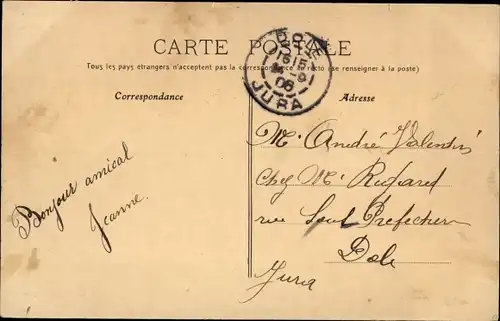 CARTE POSTALE
Tous les pays étrangers n'acceptent pas la correspondance au recto (se renseigner à la poste)
Correspondance
Adresse
DOLE
JURA
Bonjour amical
Jeanne.
Mr André Valentin
Chez Mr
rue Sous Préfecture
Dole
Jura